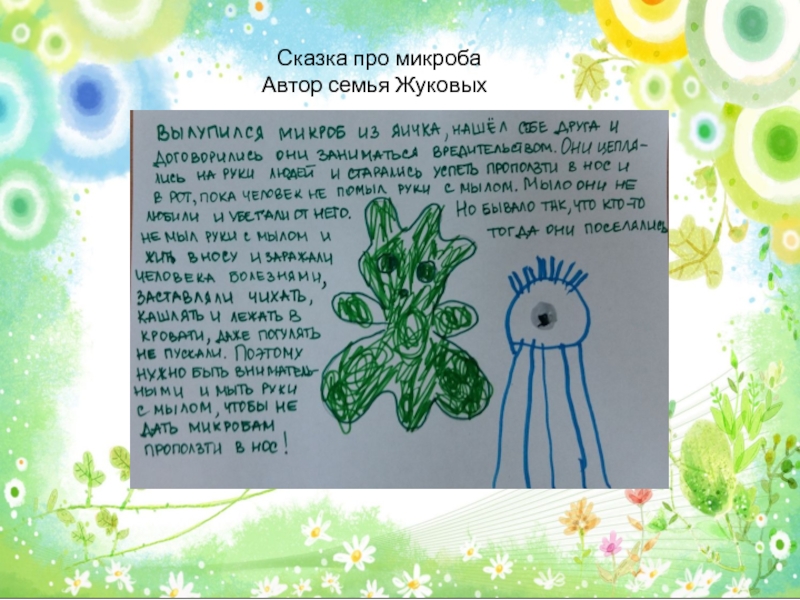 Сказка про микроба
Автор семья Жуковых
ВЫЛУПИЛСЯ МИКРОБ ИЗ ЯИЧКА, НАШЁЛ СЕБЕ ДРУГА И
ДОГОВОРИЛИСЬ ОНИ ЗАНИМАТЬСЯ ВРЕДИТЕЛЬСТВОМ. ОНИ ЦЕПЛЯ-
ЛИСЬ НА РУКИ ЛЮДЕЙ И СТАРАЛИСЬ УСПЕТЬ ПРОПОЛЗТИ В НОС И
В РОТ, ПОКА ЧЕЛОВЕК НЕ ПОМЫЛ РУКИ С МЫЛОМ. МЫЛО ОНИ НЕ
ЛЮБИЛИ И УБЕГАЛИ ОТ НЕГО. НО БЫВАЛО ТАК, ЧТО КТО-ТО
НЕ МЫЛ РУКИ С МЫЛОМ И ТОГДА ОНИ ПОСЕЛЯЛИСЬ
ЖИТЬ В НОСУ И ЗАРАЖАЛИ
ЧЕЛОВЕКА БОЛЕЗНЯМИ,
ЗАСТАВЛЯЛИ ЧИХАТЬ,
КАШЛЯТЬ И ЛЕЖАТЬ В
КРОВАТИ, ДАЖЕ ПОГУЛЯТЬ
НЕ ПУСКАЛИ. ПОЭТОМУ
НУЖНО БЫТЬ ВНИМАТЕЛЬ-
НЫМИ И МЫТЬ РУКИ
С МЫЛОМ, ЧТОБЫ НЕ
ДАТЬ МИКРОБАМ
ПРОПОЛЗТИ В НОС!